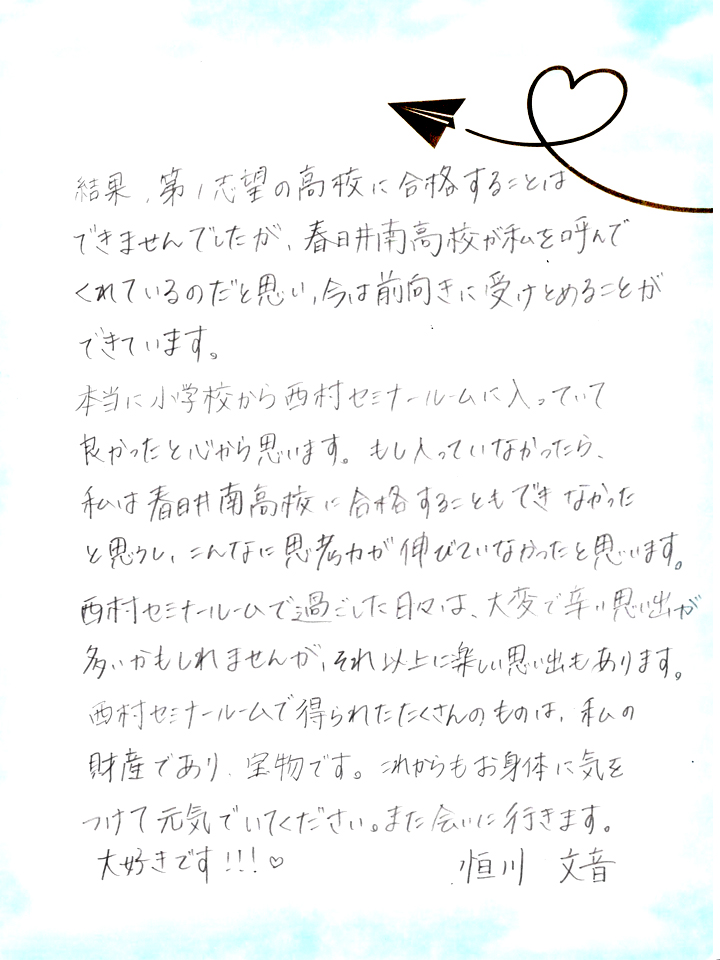 結果、第1志望の高校に合格することは
できませんでしたが、春日井南高校が私を呼んで
くれているのだと思い、今は前向きに受けとめることが
できています。
本当に小学校から西村セミナールームに入っていて
良かったと心から思います。もし入っていなかったら、
私は春日井南高校に合格することもできなかった
と思うし、こんなに思考力が伸びていなかったと思います。
西村セミナールームで過ごした日々は、大変で辛い思い出が
多いかもしれませんが、それ以上に楽しい思い出もあります。
西村セミナールームで得られたたくさんのものは、私の
財産であり、宝物です。これからもお身体に気を
つけて元気でいてください。また会いに行きます。
大好きです!!!♡ 恒川 文音